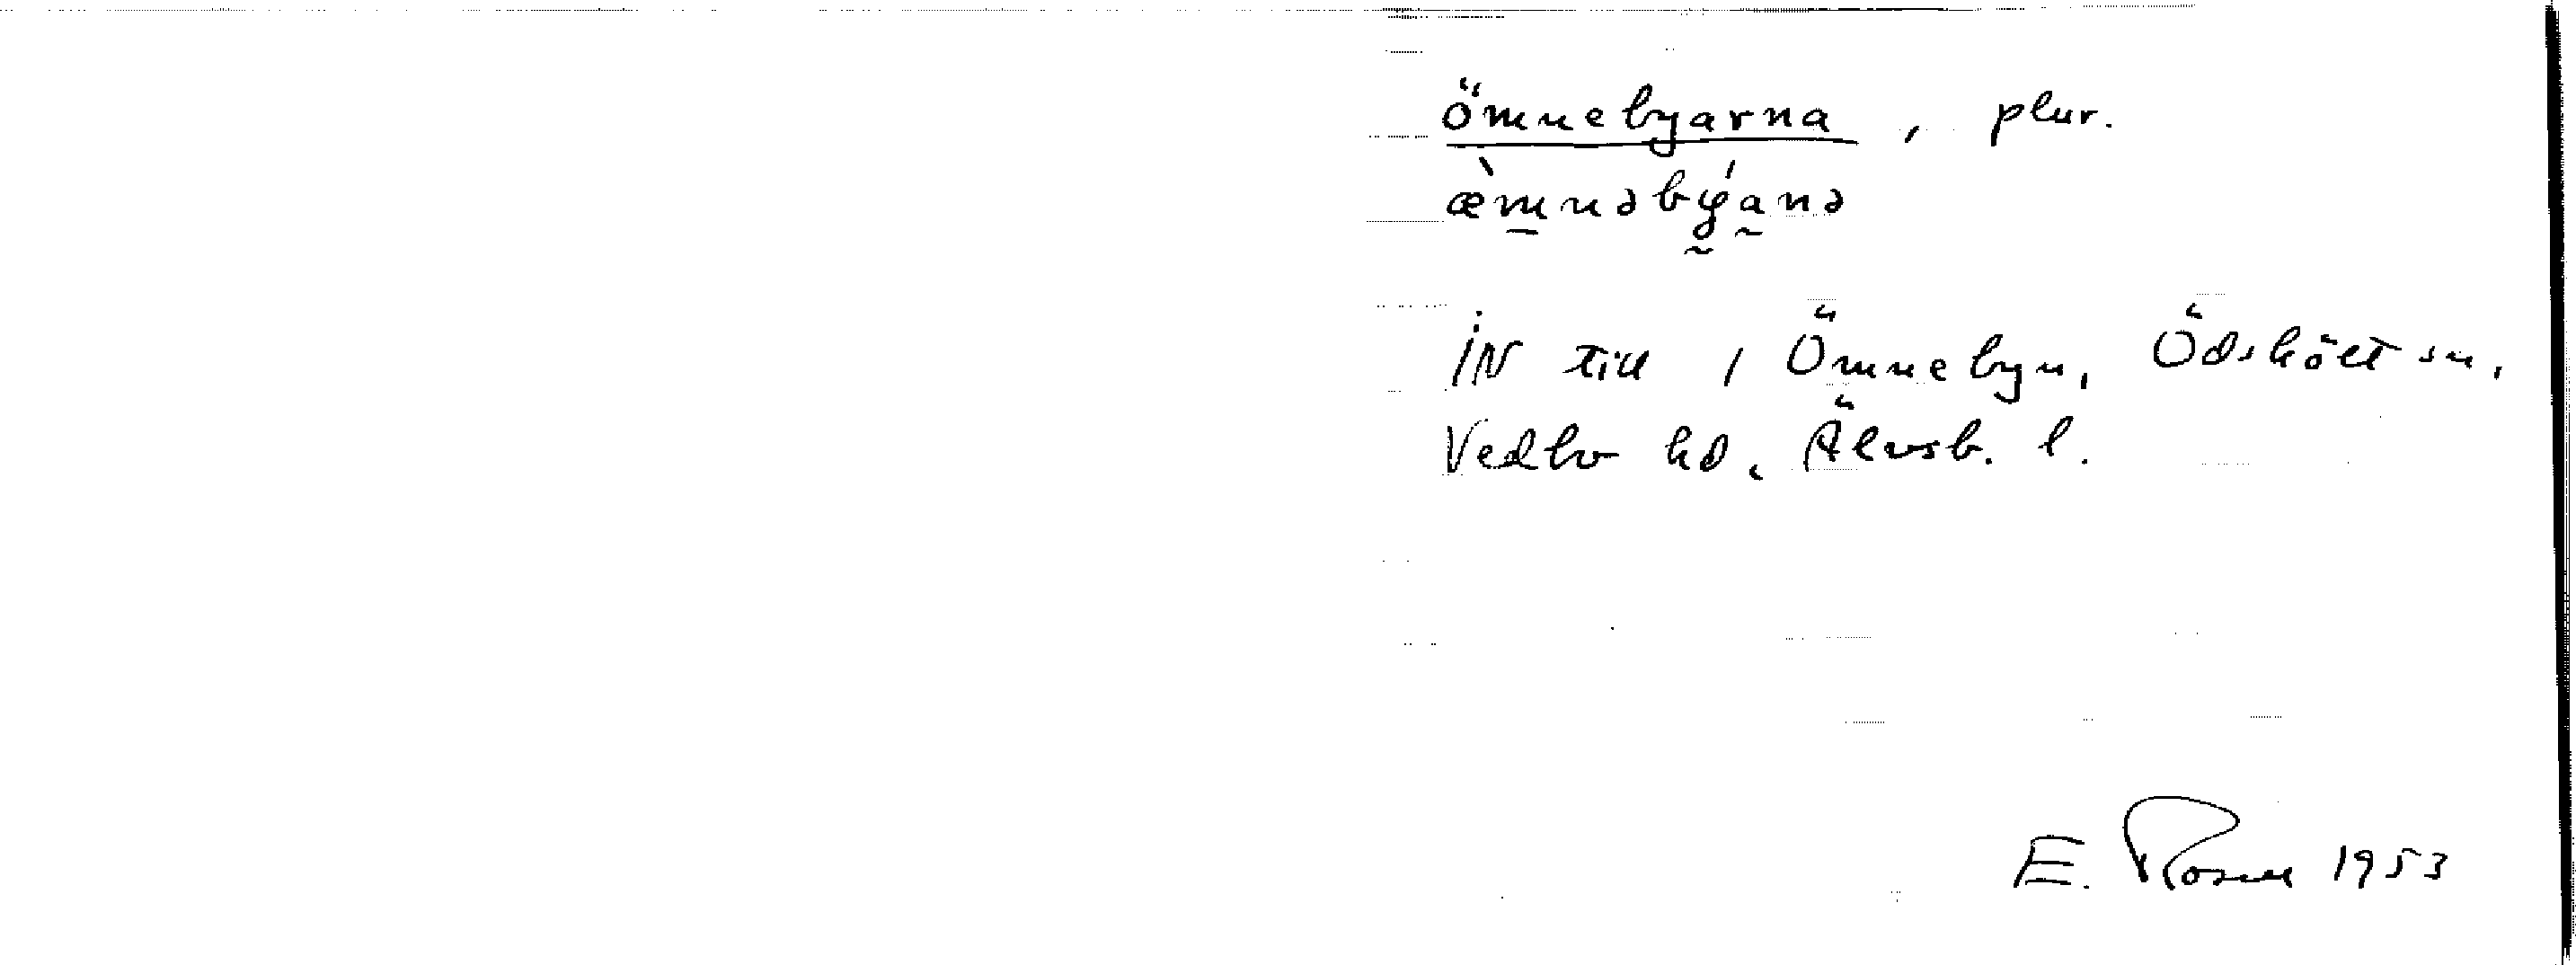 ömnebyarna, plur.
æ̀mnəbýanə
IN till, Ömnebyn, Ödskölt sn,
Vedbo hd, Älvsb. l.
E. Rosell 1953